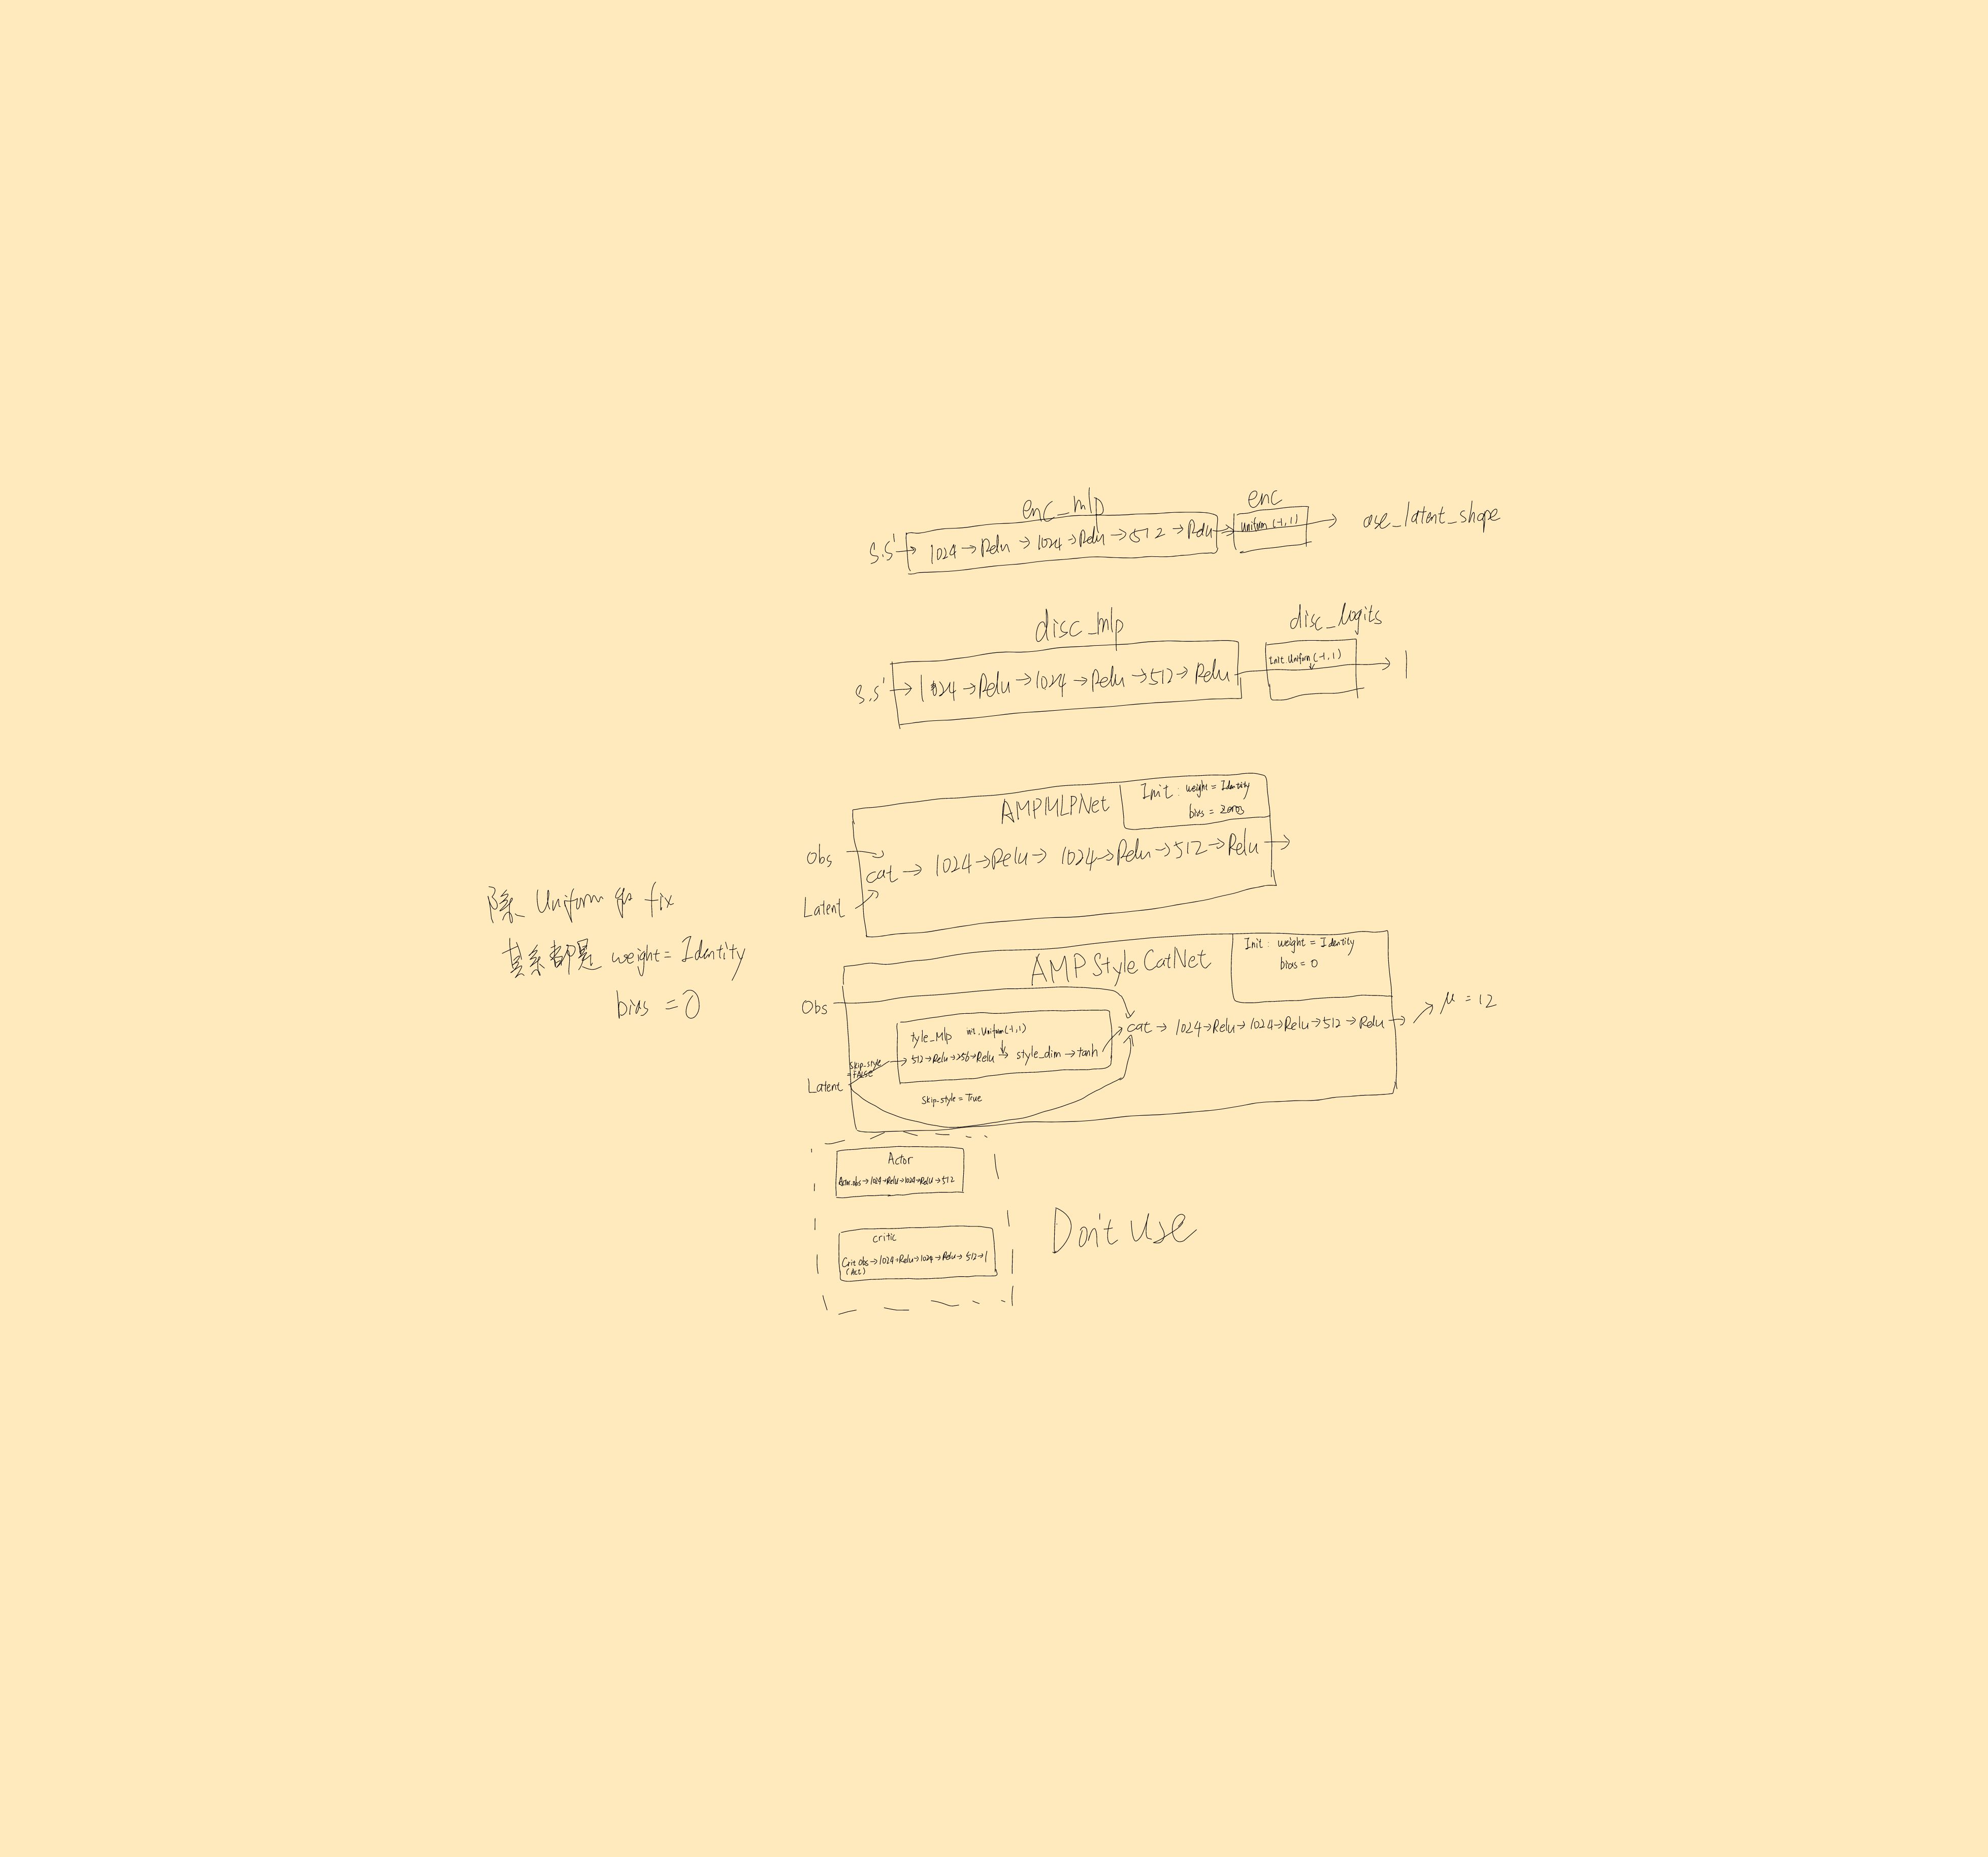 enc_mlp
enc
S.S' → 1024 → Relu → 1024 → Relu → 512 → Relu → Uniform (-1,1) → ase_latent_shape
disc_mlp
disc_logits
S.S' → 1024 → Relu → 1024 → Relu → 512 → Relu
Init Uniform (-1,1)
→ 1
AMPMLPNet
Init : weight = Identity
bias = zeros
Obs
cat → 1024 → Relu → 1024 → Relu → 512 → Relu →
Latent
除 Uniform fix
其余都是 weight = Identity
bias = 0
AMPStyleCatNet
Init : weight = Identity
bias = 0
Obs
tyle_Mlp Uniform(-1,1)
512 → Relu → 256 → Relu → style_dim → tanh
cat → 1024 → Relu → 1024 → Relu → 512 → Relu → μ = 12
Skip_style
= FALSE
Latent
Skip_style = True
Actor
Actor.obs → 1024 → Relu → 1024 → Relu → 512
critic
Crit.obs → 1024 → Relu → 1024 → Relu → 512 → 1
(Act)
Don't Use